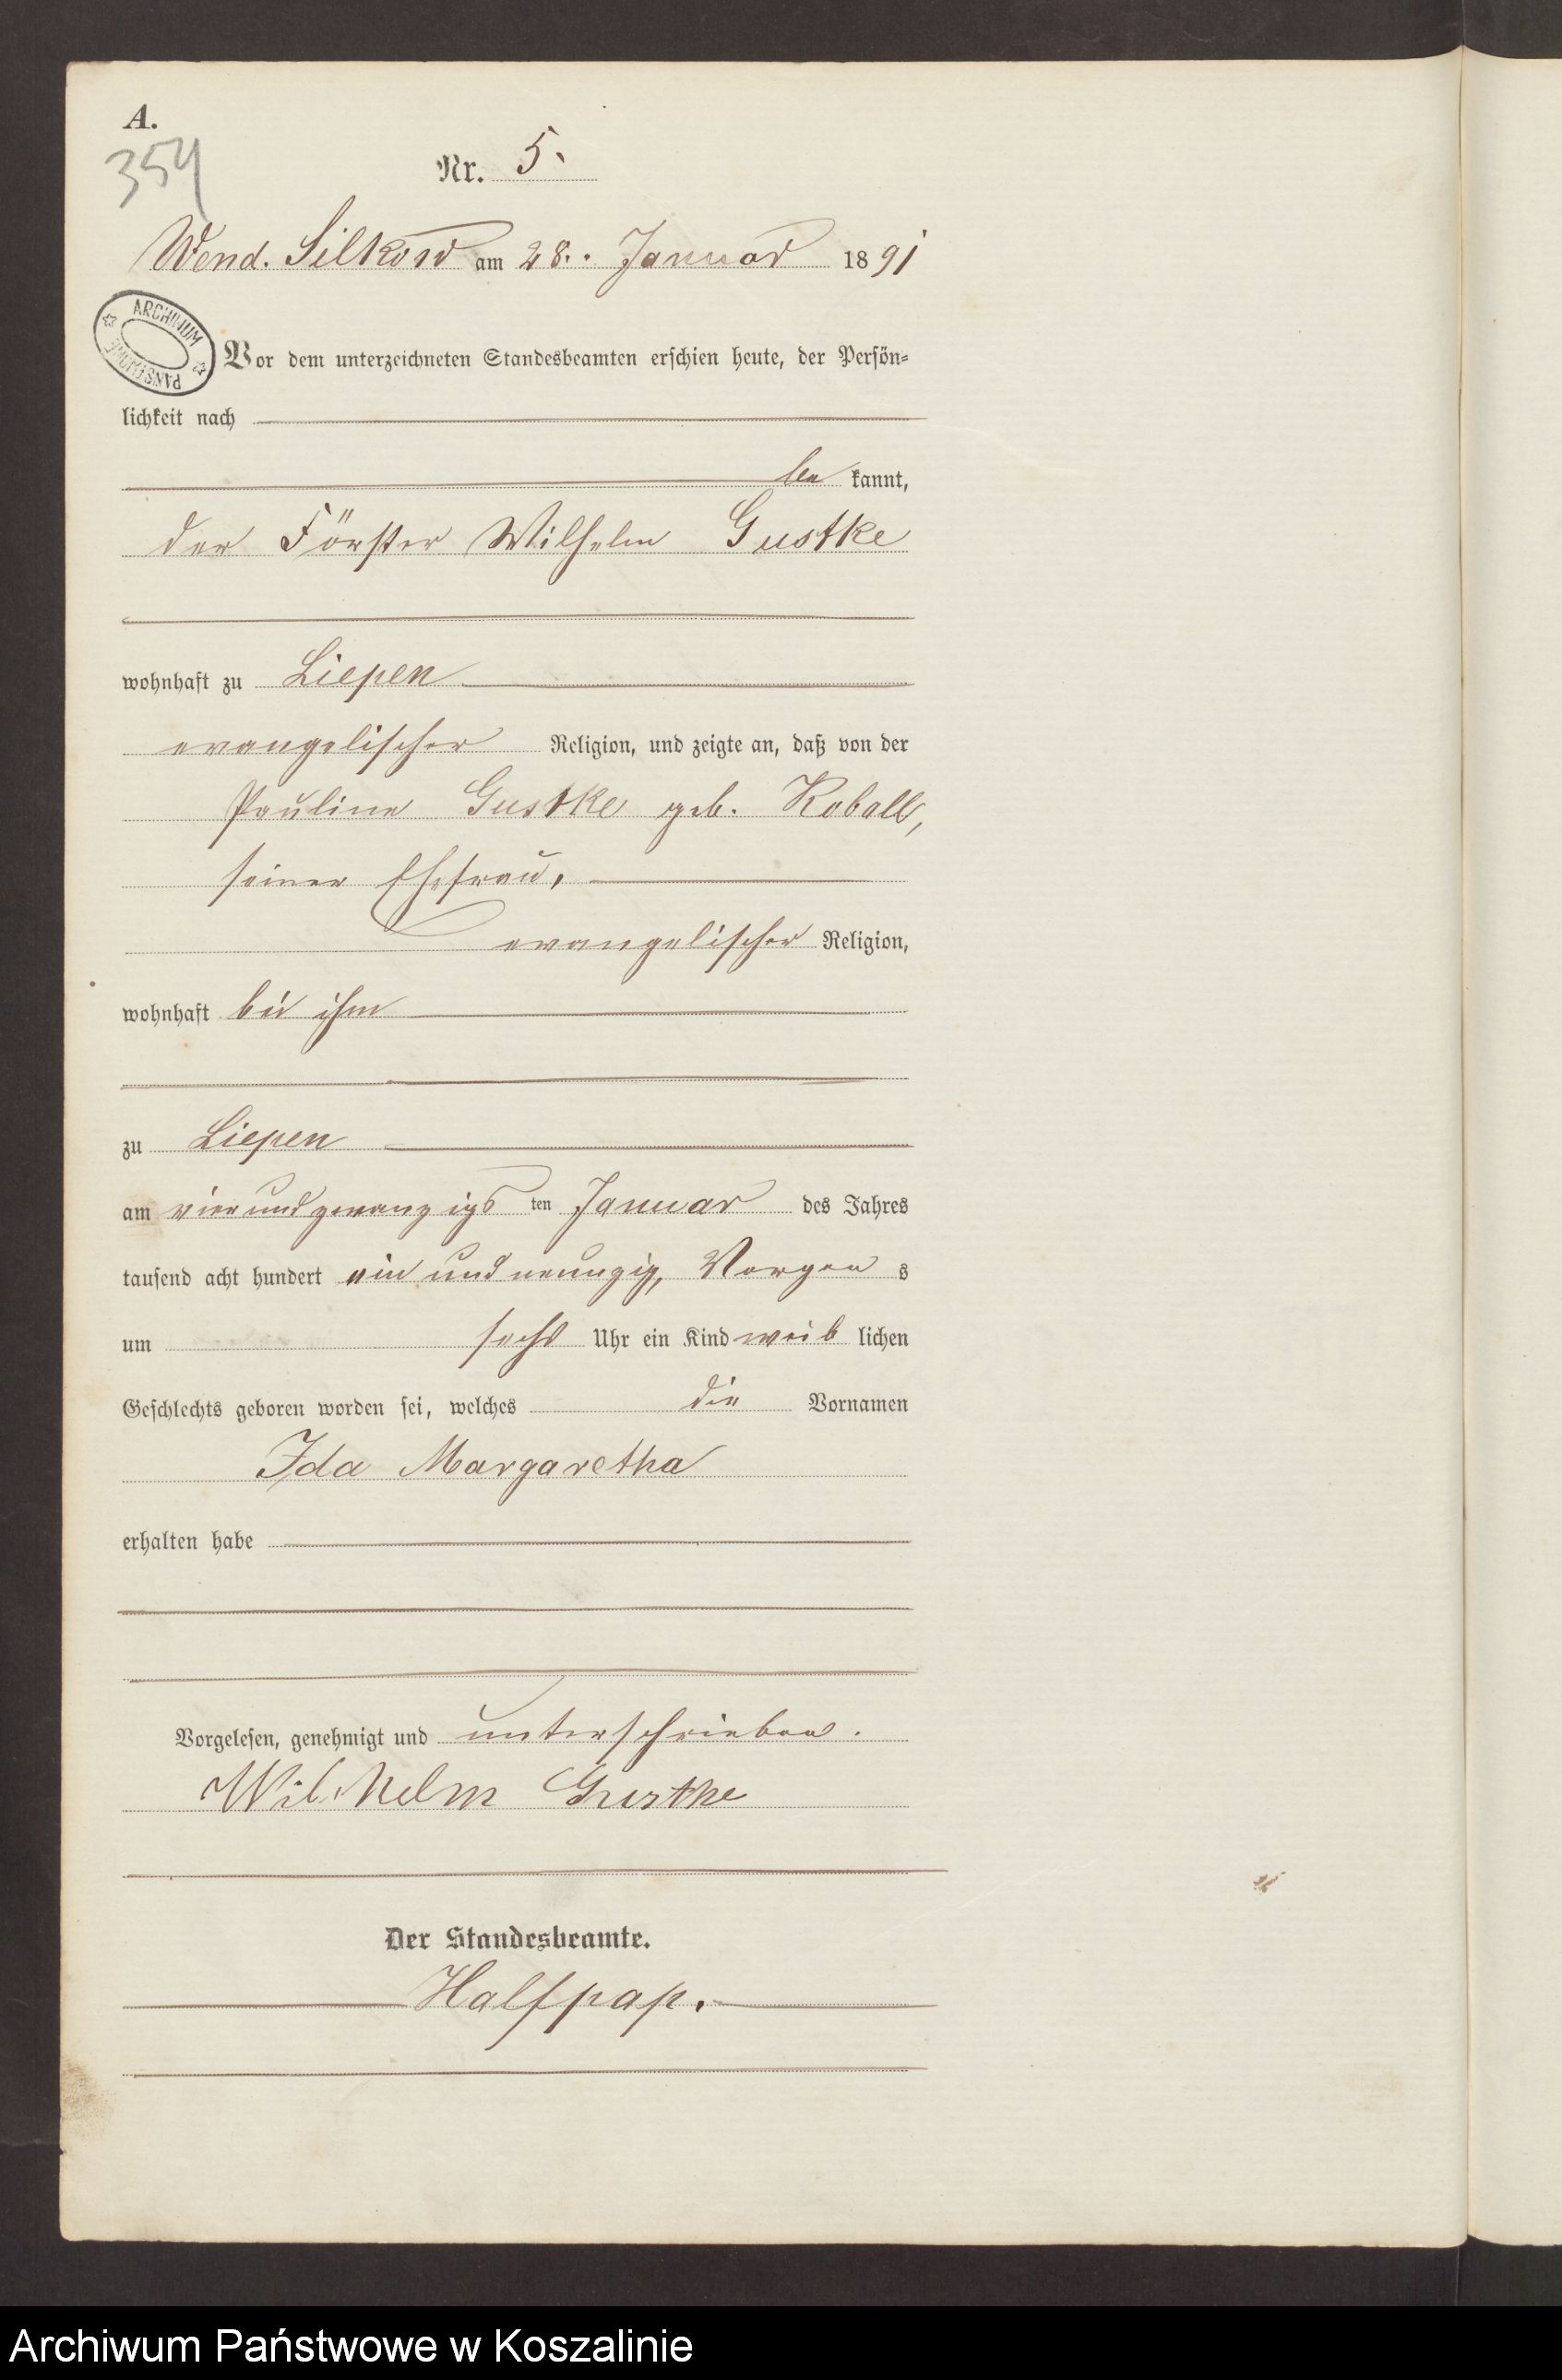 A.
354
Nr. 5.
Wend. Silkow am 28. Januar 1891
ARCHIWUM PAŃSTWOWE
Vor dem unterzeichneten Standesbeamten erschien heute, der Persön-
lichkeit nach
be kannt,
der Förster Wilhelm Gustke
wohnhaft zu Liepen
evangelischer Religion, und zeigte an, daß von der
Pauline Gustke geb. Koball,
seiner Ehefrau,
evangelischer Religion,
wohnhaft bei ihm
zu Liepen
am vierundzwanzigs ten Januar des Jahres
tausend acht hundert ein und neunzig, Morgen s
um sechs Uhr ein Kind weib lichen
Geschlechts geboren worden sei, welches die Vornamen
Ida Margaretha
erhalten habe
Vorgelesen, genehmigt und unterschrieben.
Wilhelm Gustke
Der Standesbeamte.
Halfpap.
Archiwum Państwowe w Koszalinie